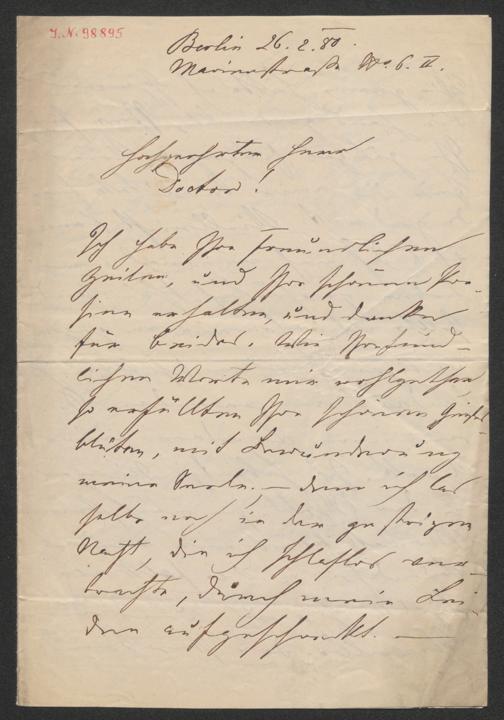 J. N. 98895
Berlin 26. 2. 80.
Marienstraße No 6. II.
Hochgeehrter Herr
Doctor!
Ich habe Ihre freundlichen
Zeilen, und Ihre schönen Poe-
sien erhalten, und danke
für beides. Wie Ihre freund-
lichen Worte mir wohlgethan
so erfüllten Ihre schönen Geistes
blüten, mit Bewunderung
meine Seele. – denn ich las
selbe noch in der gestrigen
Nacht, die ich schlaflos ver-
brachte, durch mein Lei-
den aufgeschreckt. –